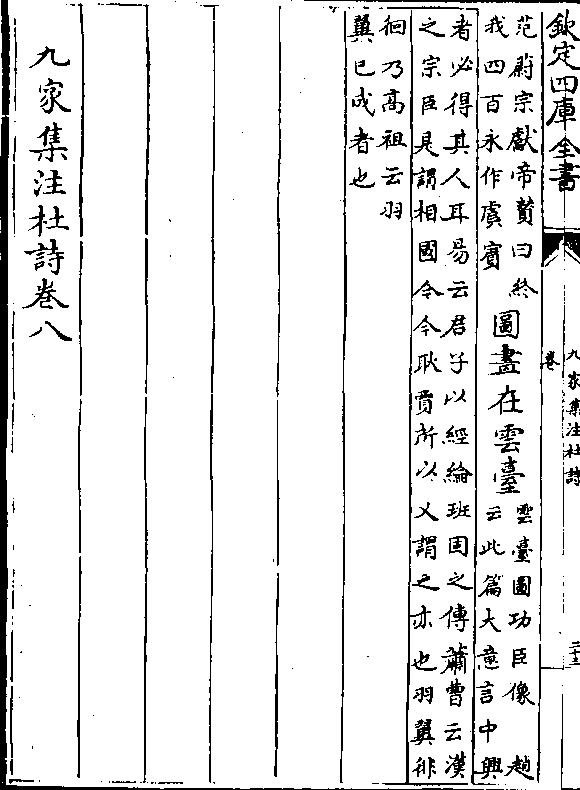 欽定四庫全書
九家集注杜詩
卷
范蔚宗獻帝贊曰終
我四百永作虞賓
圖畫在雲臺
雲臺圖功臣像 趙
云此篇大意言中興
者必得其人耳易云君子以經綸班固之傳蕭曹云漢
之宗臣是謂相國令今耿賈所以乂謂之亦也羽翼徘
徊乃高祖云羽
翼已成者也
九家集注杜詩卷八